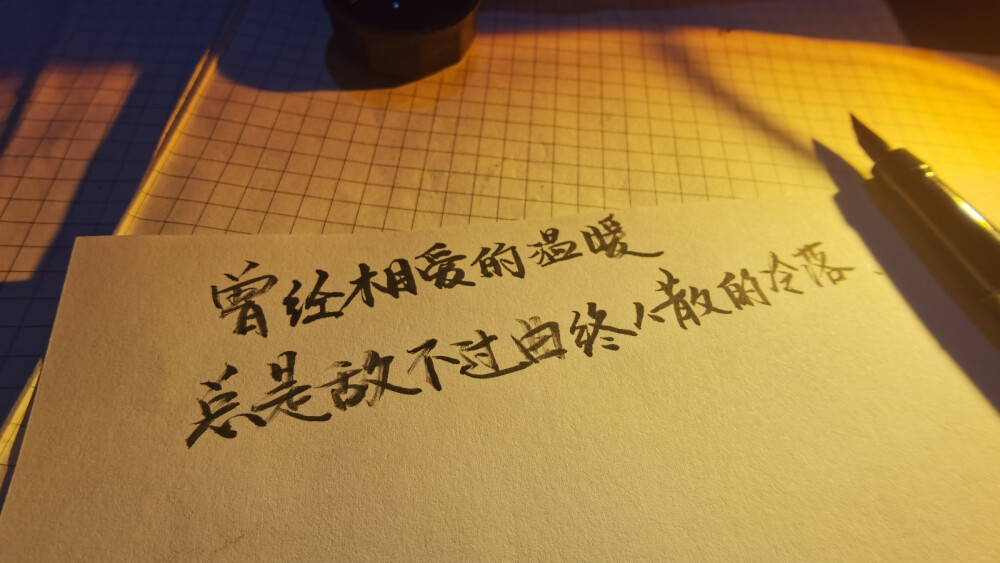 曾经相爱的温暖
总是敌不过曲终人散的冷落